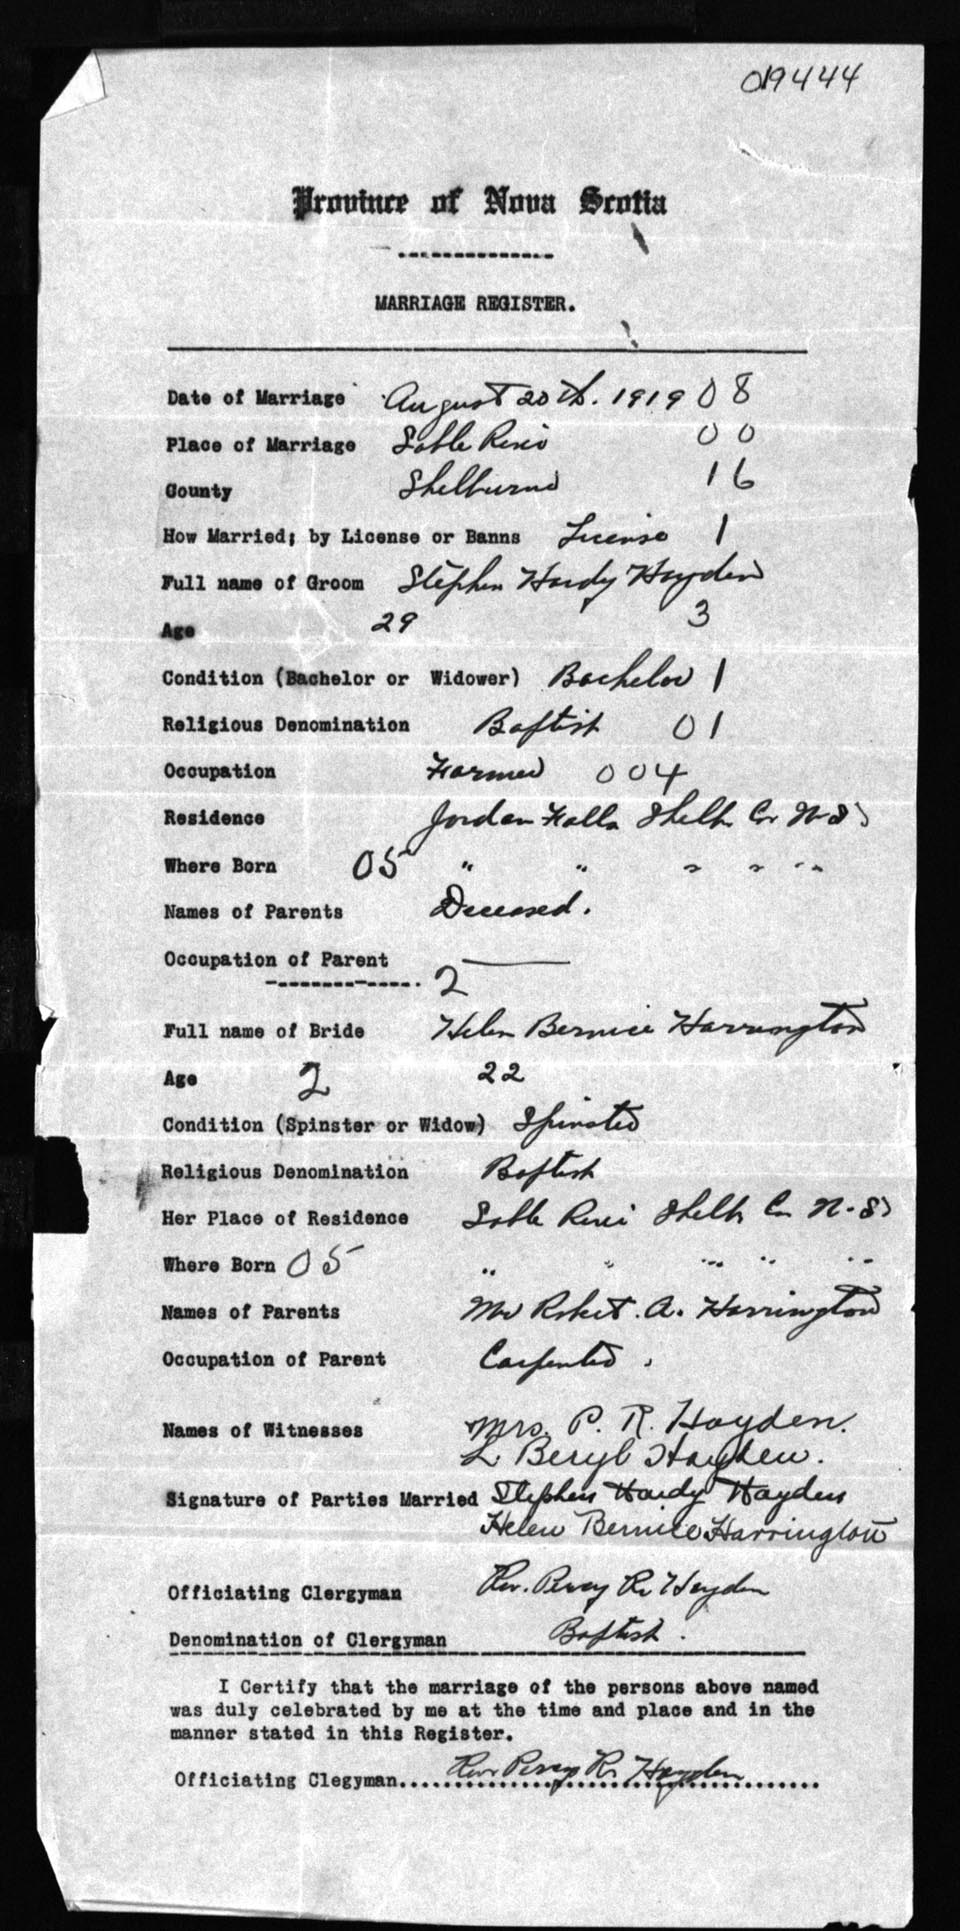 019444
Province of Nova Scotia
MARRIAGE REGISTER.
Date of Marriage August 20th. 1919 08
Place of Marriage Sable River 00
County Shelburne 16
How Married; by License or Banns License 1
Full name of Groom Stephen Hardy Hayden
Age 29 3
Condition (Bachelor or Widower) Bachelor 1
Religious Denomination Baptist 01
Occupation Farmer 004
Residence Jordan Falls Shelb. Co. N.S.
Where Born 05 " " " " " "
Names of Parents Deceased.
Occupation of Parent —
2
Full name of Bride Helen Bernice Harrington
Age 2 22
Condition (Spinster or Widow) Spinster
Religious Denomination Baptist
Her Place of Residence Sable River Shelb. Co. N.S.
Where Born 05 " " " " "
Names of Parents Mr Robert. A. Harrington
Occupation of Parent Carpenter.
Names of Witnesses Mrs. P. R. Hayden.
L. Beryl Hayden.
Signature of Parties Married Stephen Hardy Hayden
Helen Bernice Harrington
Officiating Clergyman Rev. Percy R. Hayden
Denomination of Clergyman Baptist.
I Certify that the marriage of the persons above named
was duly celebrated by me at the time and place and in the
manner stated in this Register.
Officiating Clegyman.... Rev. Percy R. Hayden